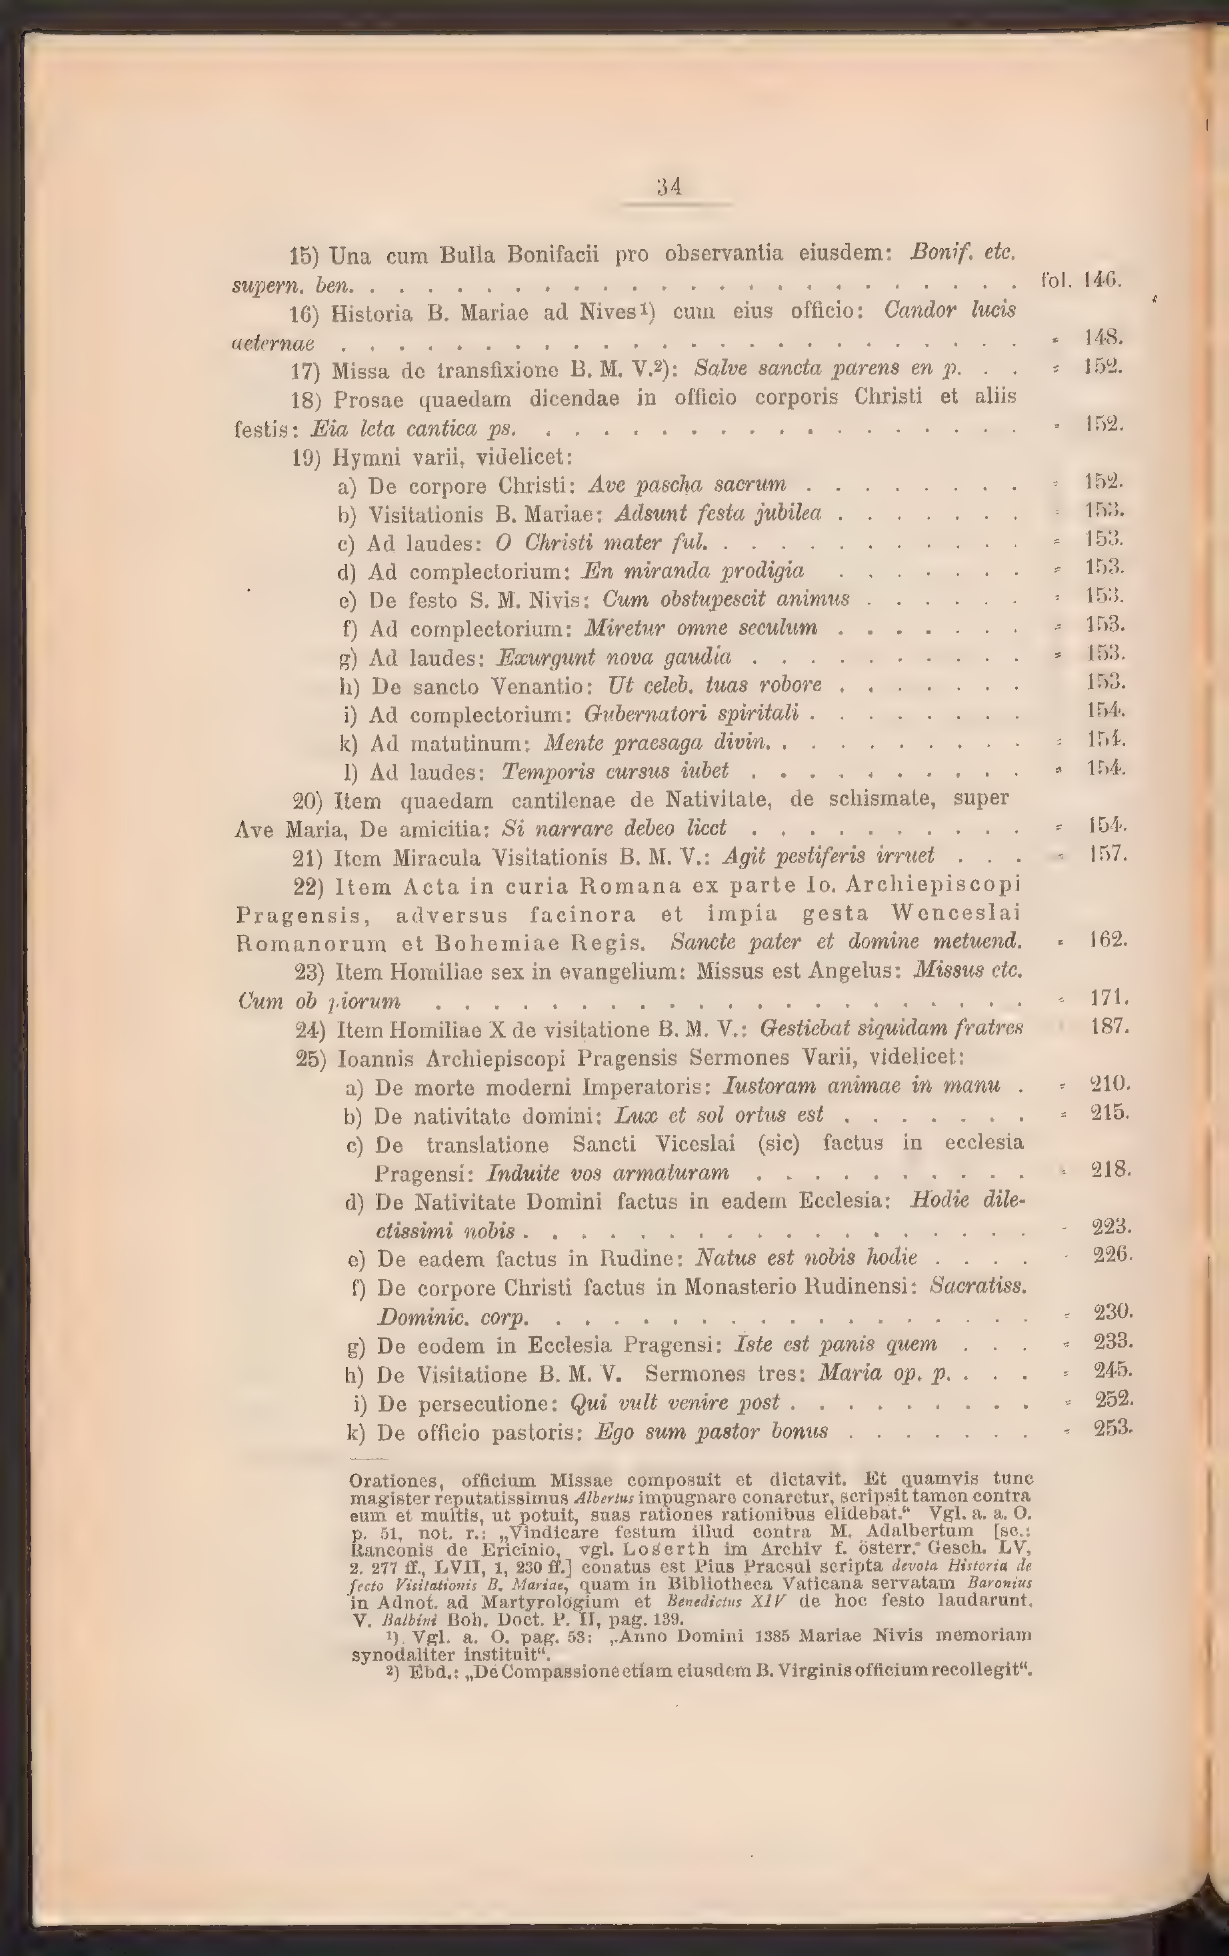 34
15) Una cum Bulla Bonifacii pro observantia eiusdem: Bonif. etc.
supern. ben. . . . . . . . . . . . . . . . . . . . . . . . fol. 146.
16) Historia B. Mariae ad Nives1) cum eius officio: Candor lucis
aeternae . . . . . . . . . . . . . . . . . . . . . . . . = 148.
17) Missa de transfixione B. M. V.2): Salve sancta parens en p. . . = 152.
18) Prosae quaedam dicendae in officio corporis Christi et aliis
festis: Eia leta cantica ps. . . . . . . . . . . . . . . . . . . = 152.
19) Hymni varii, videlicet:
a) De corpore Christi: Ave pascha sacrum . . . . . . . . = 152.
b) Visitationis B. Mariae: Adsunt festa jubilea . . . . . . . = 153.
c) Ad laudes: O Christi mater ful. . . . . . . . . . . . = 153.
d) Ad complectorium: En miranda prodigia . . . . . . . = 153.
e) De festo S. M. Nivis: Cum obstupescit animus . . . . . . = 153.
f) Ad complectorium: Miretur omne seculum . . . . . . . = 153.
g) Ad laudes: Exurgunt nova gaudia . . . . . . . . . . = 153.
h) De sancto Venantio: Ut celeb. tuas robore . . . . . . . 153.
i) Ad complectorium: Gubernatori spiritali . . . . . . . . 154.
k) Ad matutinum: Mente praesaga divin. . . . . . . . . . = 154.
l) Ad laudes: Temporis cursus iubet . . . . . . . . . . = 154.
20) Item quaedam cantilenae de Nativitate, de schismate, super
Ave Maria, De amicitia: Si narrare debeo licet . . . . . . . . . . = 154.
21) Item Miracula Visitationis B. M. V.: Agit pestiferis irruet . . . = 157.
22) Item Acta in curia Romana ex parte Io. Archiepiscopi
Pragensis, adversus facinora et impia gesta Wenceslai
Romanorum et Bohemiae Regis. Sancte pater et domine metuend. = 162.
23) Item Homiliae sex in evangelium: Missus est Angelus: Missus etc.
Cum ob piorum . . . . . . . . . . . . . . . . . . . . . = 171.
24) Item Homiliae X de visitatione B. M. V.: Gestiebat siquidam fratres 187.
25) Ioannis Archiepiscopi Pragensis Sermones Varii, videlicet:
a) De morte moderni Imperatoris: Iustoram animae in manu . = 210.
b) De nativitate domini: Lux et sol ortus est . . . . . . . = 215.
c) De translatione Sancti Viceslai (sic) factus in ecclesia
Pragensi: Induite vos armaturam . . . . . . . . . . = 218.
d) De Nativitate Domini factus in eadem Ecclesia: Hodie dile-
ctissimi nobis . . . . . . . . . . . . . . . . . . = 223.
e) De eadem factus in Rudine: Natus est nobis hodie . . . . = 226.
f) De corpore Christi factus in Monasterio Rudinensi: Sacratiss.
Dominic. corp. . . . . . . . . . . . . . . . . . . = 230.
g) De eodem in Ecclesia Pragensi: Iste est panis quem . . . = 233.
h) De Visitatione B. M. V. Sermones tres: Maria op. p. . . . = 245.
i) De persecutione: Qui vult venire post . . . . . . . . . = 252.
k) De officio pastoris: Ego sum pastor bonus . . . . . . . = 253.
Orationes, officium Missae composuit et dictavit. Et quamvis tunc
magister reputatissimus Albertus impugnare conaretur, scripsit tamen contra
eum et multis, ut potuit, suas rationes rationibus elidebat.“ Vgl. a. a. O.
p. 51, not. r.: „Vindicare festum illud contra M. Adalbertum [sc.:
Ranconis de Ericinio, vgl. Loserth im Archiv f. österr. Gesch. LV,
2. 277 ff., LVII, 1, 230 ff.] conatus est Pius Praesul scripta devota Historia de
fecto Visitationis B. Mariae, quam in Bibliotheca Vaticana servatam Baronius
in Adnot. ad Martyrologium et Benedictus XIV de hoc festo laudarunt.
V. Balbini Boh. Doct. P. II, pag. 139.
1). Vgl. a. O. pag. 53: „Anno Domini 1385 Mariae Nivis memoriam
synodaliter instituit“.
2) Ebd.: „De Compassione etiam eiusdem B. Virginis officium recollegit“.